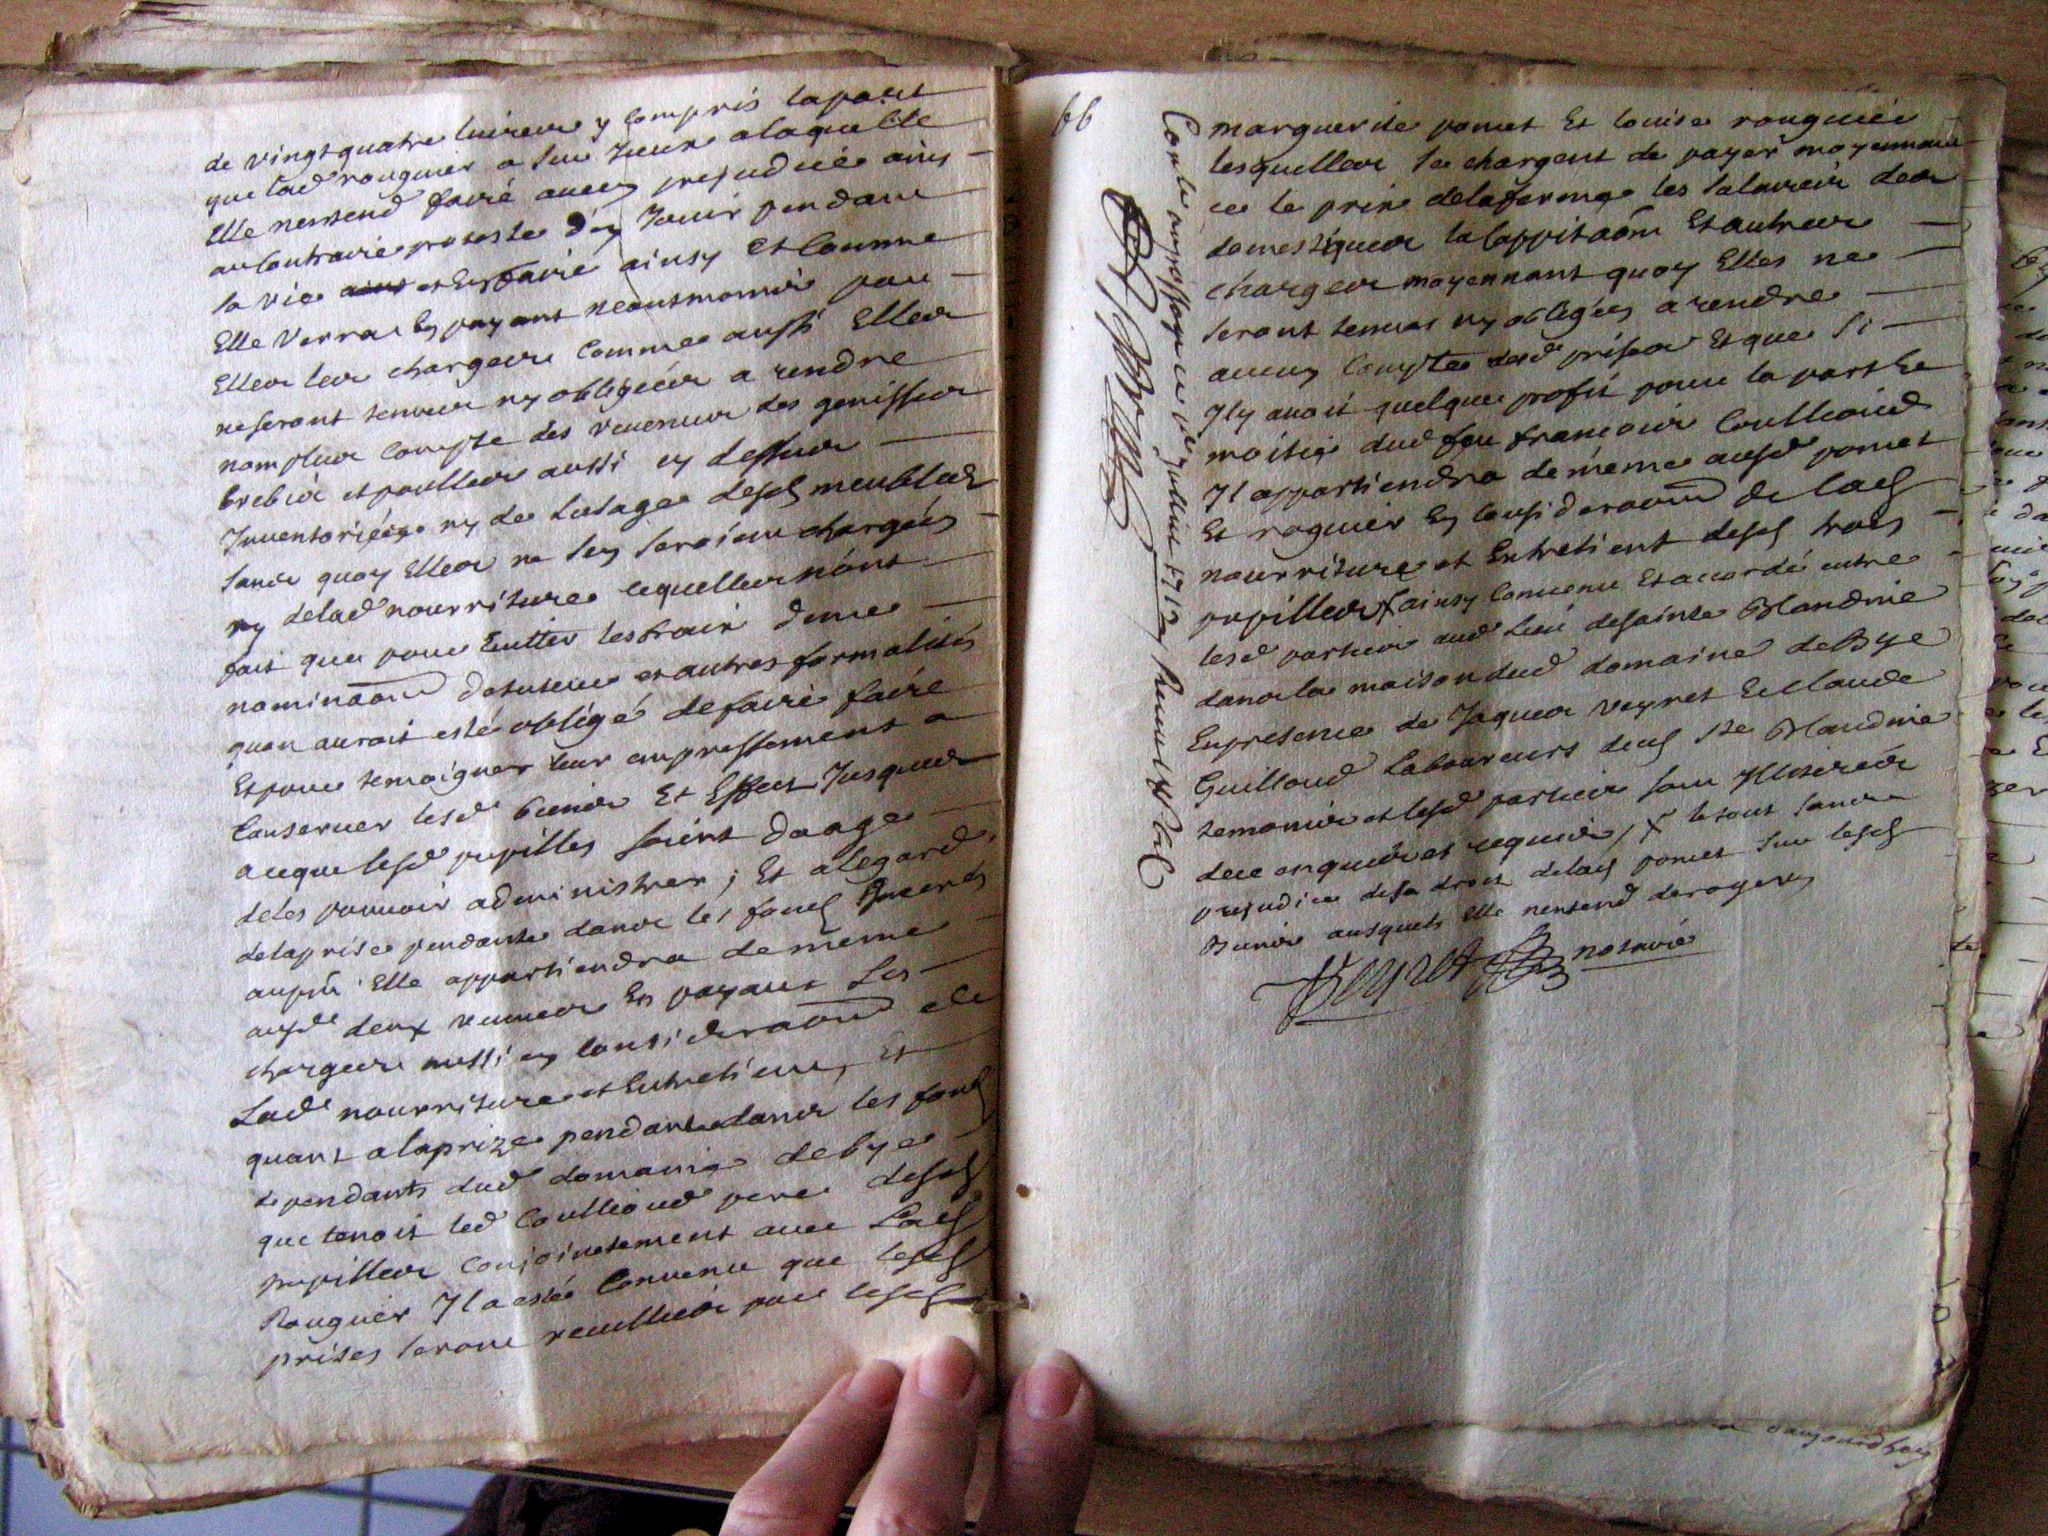 de vingt quatre livres y compris la part
que lad rouguier a sur Iceux a laquelle
Elle nentend faire aucun prejudice ains
au Contraire proteste d'en Jouir pendant
sa vie et En faire ainsy et Comme
Elle Verra En payant neantmoins par
Elles les charges Comme aussi Elles
ne seront tenues ny obligées a rendre
non plus Compte des revenus des genisses
brebis et poulles aussi cy dessus
Inventoriées ny de Lusage desd meubles
sans quoy Elles ne sen seroient chargées
ny de lad nourriture lequelles n'ont
fait que pour Eviter les frais d'une
nominaōn de tuteur et autres formalités
quon auroit esté obligé de faire faire
Et pour temoigner leur empressement a
Conserver lesd biens Et Effects Jusques
a ce que lesd pupilles soient d'aage
de les pouvoir administrer ; Et a legard
de la prise pendante dans les fonds
Elle appartiendra de meme
ausd deux veuves En payant Les
charges aussi en Consideraōn de
Lad nourriture et Entretient, Et
quant a la prize pendante dans les fonds
dependants dud domaine de bye
que tenoit led Coullioud pere desd
pupilles Conjointement avec Lad
Rouguier Il a esté Convenu que lesd
prises seront receuillies par lesd
66
marguerite pomet Et Louise rouguier
lesquelles se chargent de payer moyennant
ce le prix de la ferme les salaires des
domestiques la Cappitaōn Et autres
charges moyennant quoy Elles ne
seront tenues ny obligées a rendre
aucun Compte desd prises Et que si
Il y avoit quelque profit pour la part Et
moitié dud feu francois Coullioud
Il appartiendra de meme ausd pomet
Et roguier En Consideraōn de lad
nourriture et Entretient desd trois
pupilles ainsy Convenu Et accordé entre
lesd parties aud Lieu de sainte Blandine
dans la maison dud domaine de Bye
En presence de Jaques Veyret Et Claude
Guilloud Laboureurs dud Ste Blandine
temoins et lesd parties sont Illiterées
de ce enquis et requis, X le tout sans
prejudice des droits de lad pomet sur lesd
biens ausquels Elle nentend deroger
notaire
Conle 1712